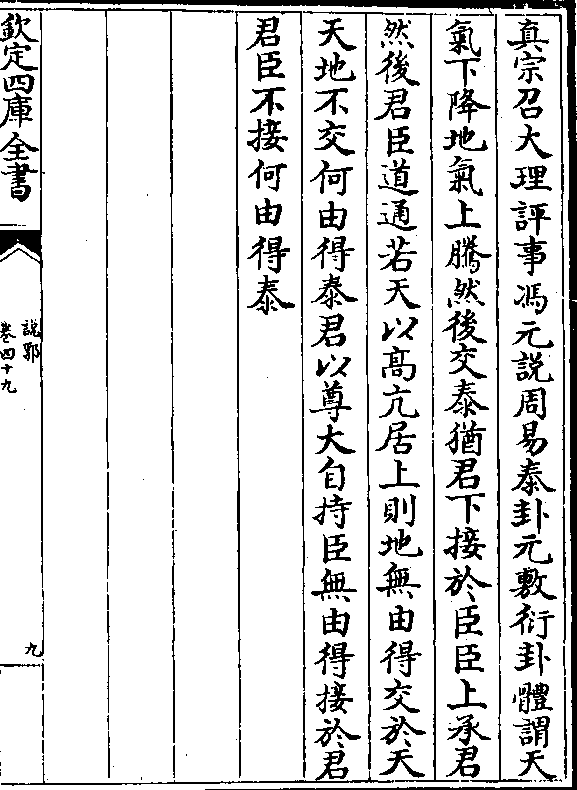 真宗召大理評事馮元說周易泰卦元敷衍卦體謂天
氣下降地氣上騰然後交泰猶君下接於臣臣上承君
然後君臣道通若天以高亢居上則地無由得交於天
天地不交何由得泰君以尊大自持臣無由得接於君
君臣不接何由得泰
欽定四庫全書
說郛
卷四十九
九